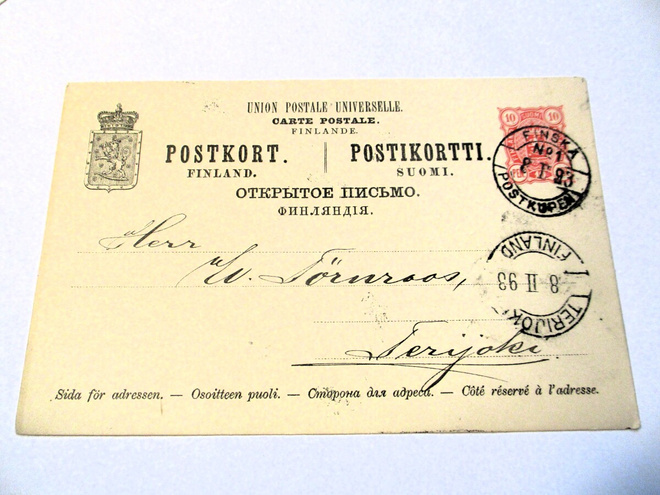 UNION POSTALE UNIVERSELLE.
CARTE POSTALE.
FINLANDE.
POSTKORT. POSTIKORTTI.
FINLAND. SUOMI.
ОТКРЫТОЕ ПИСЬМО.
ФИНЛЯНДІЯ.
10 10
FINSKA
No 1
8 II 93
POSTKUPEN
FINLAND
8 II 93
TERIJOKI
Herr
W. Törnroos,
Terijoki.
Sida för adressen. — Osoitteen puoli. — Сторона для адреса. — Côté réservé à l'adresse.